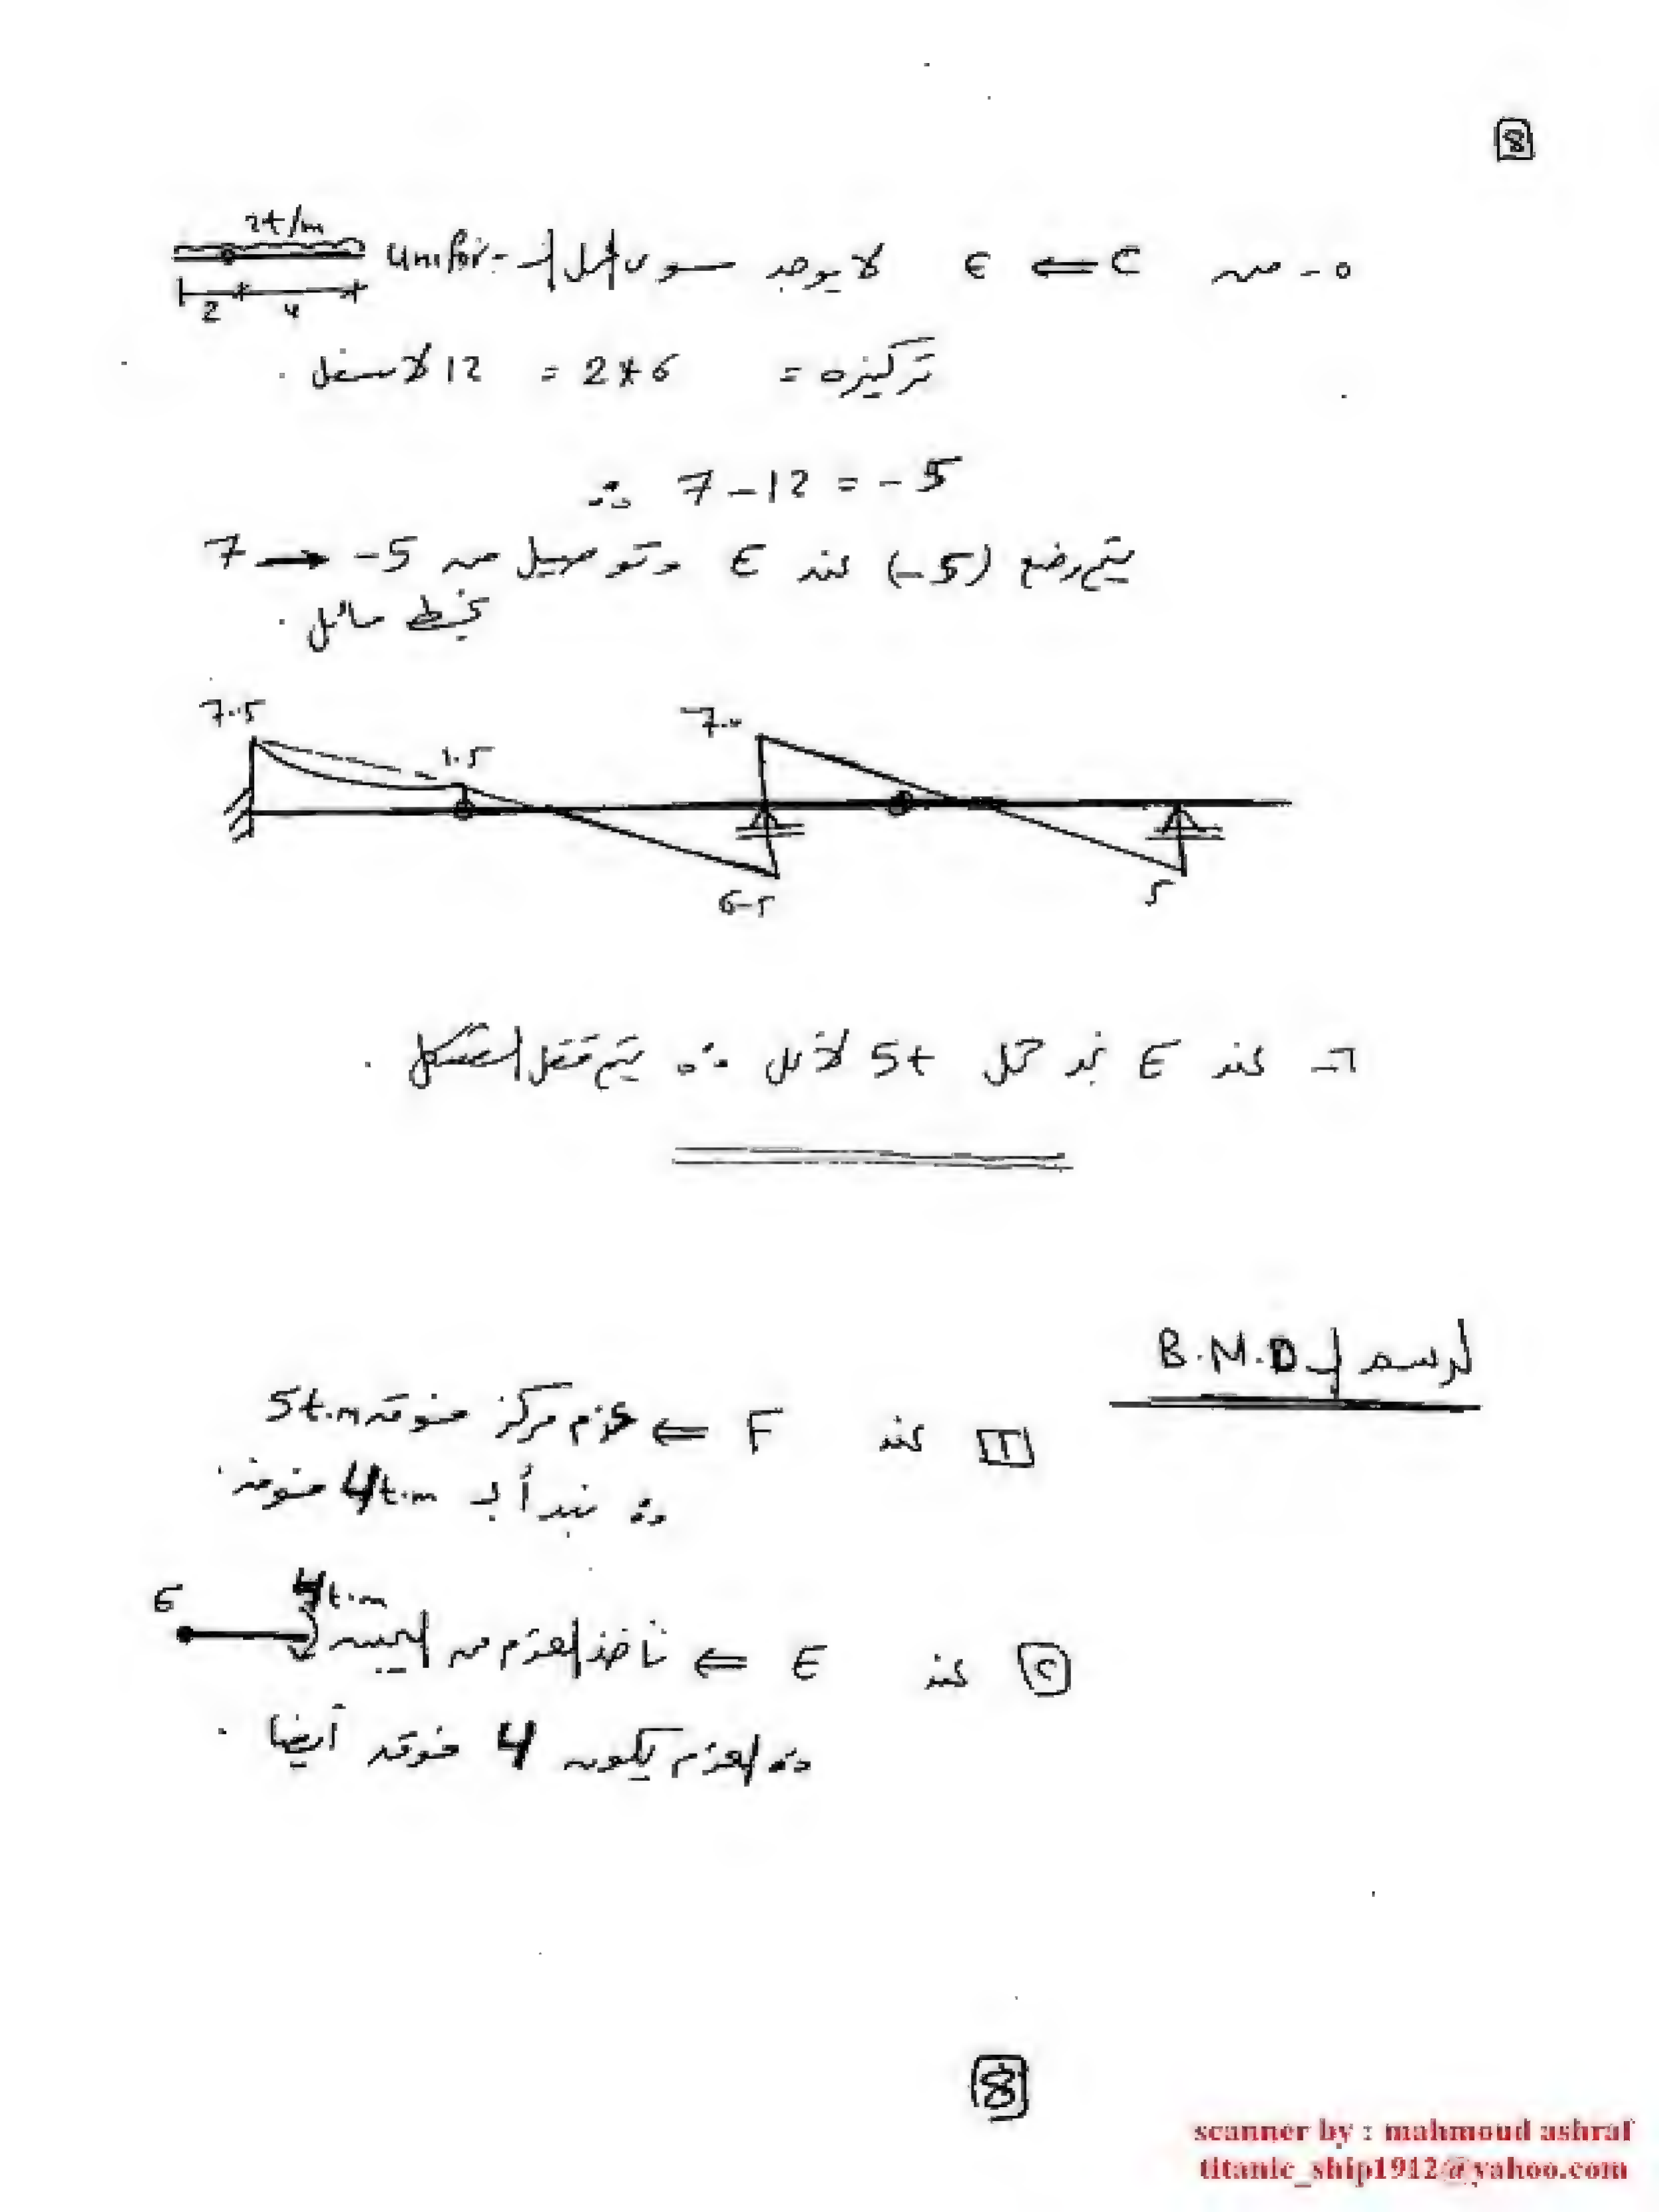 8
٥- من C ⇐ E لا يوجد سوى الحمل الـ Unifor-
2t/m
2 4
تركيزه = 2*6 = 12 لأسفل .
∴ 7 - 12 = - 5
يتم وضع (-5) عند E وتوصيل من 7 → -5
بخط مائل .
7.5 1.5 7.0
6.5 5
٦- عند E نجد حمل 5t لأعلى ∴ يتم قفل الشكل .
لرسم الـ B.M.D
1 عند F ⇐ عزم مركز فوقه 5t.m
∴ نبدأ بـ 4t.m فوقه .
٢ عند E ⇐ نأخذ العزم من اليمين
E 4t.m
∴ العزم يكون 4 فوقه أيضا .
8
scanner by : mahmoud ashraf
titanic_ship1912@yahoo.com